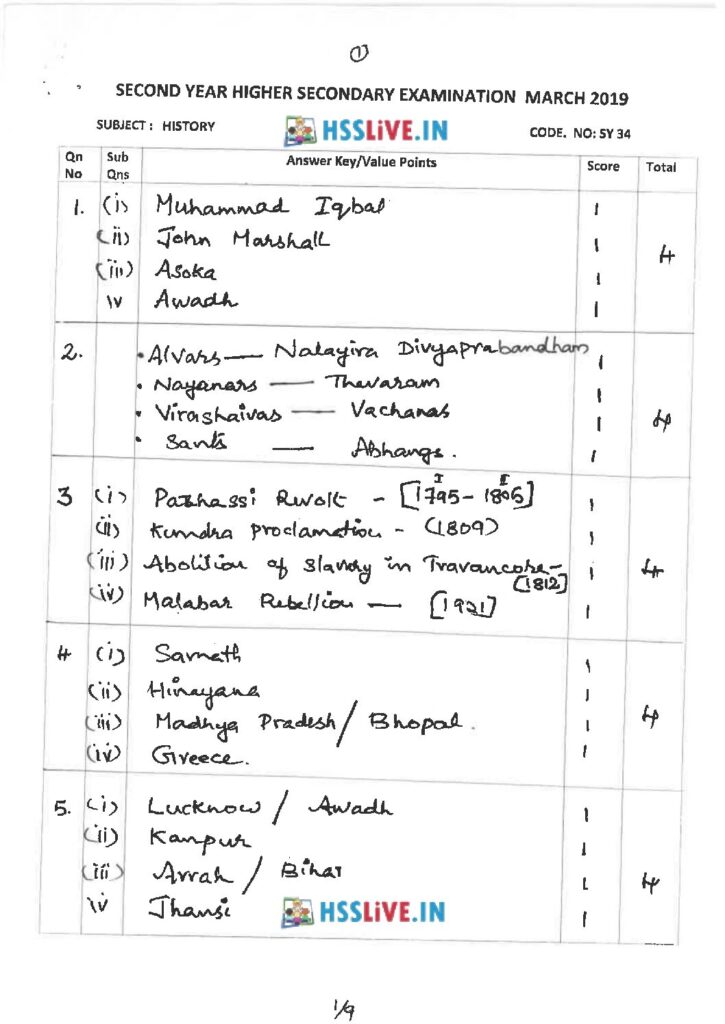 ①
SECOND YEAR HIGHER SECONDARY EXAMINATION MARCH 2019
SUBJECT : HISTORY HSSLiVE.IN CODE. NO: SY 34
Qn No Sub Qns Answer Key/Value Points Score Total
1. (i) Muhammad Iqbal 1
(ii) John Marshall 1 4
(iii) Asoka 1
iv Awadh 1
2. • Alvars — Nalayira Divyaprabandham 1
• Nayanars — Thevaram 1
• Virashaivas — Vachanas 1 4
• Sants — Abhangs. 1
3 (i) Pazhassi Revolt - [I 1795 - II 1806] 1
(ii) Kundra proclamation - (1809) 1
(iii) Abolition of slavery in Travancore - [1812] 1 4
(iv) Malabar Rebellion — [1921] 1
4 (i) Sarnath 1
(ii) Hinayana 1
(iii) Madhya Pradesh / Bhopal. 1 4
(iv) Greece. 1
5. (i) Lucknow / Awadh 1
(ii) Kanpur 1
(iii) Arrah / Bihar 1 4
iv Jhansi 1
HSSLiVE.IN
1/9